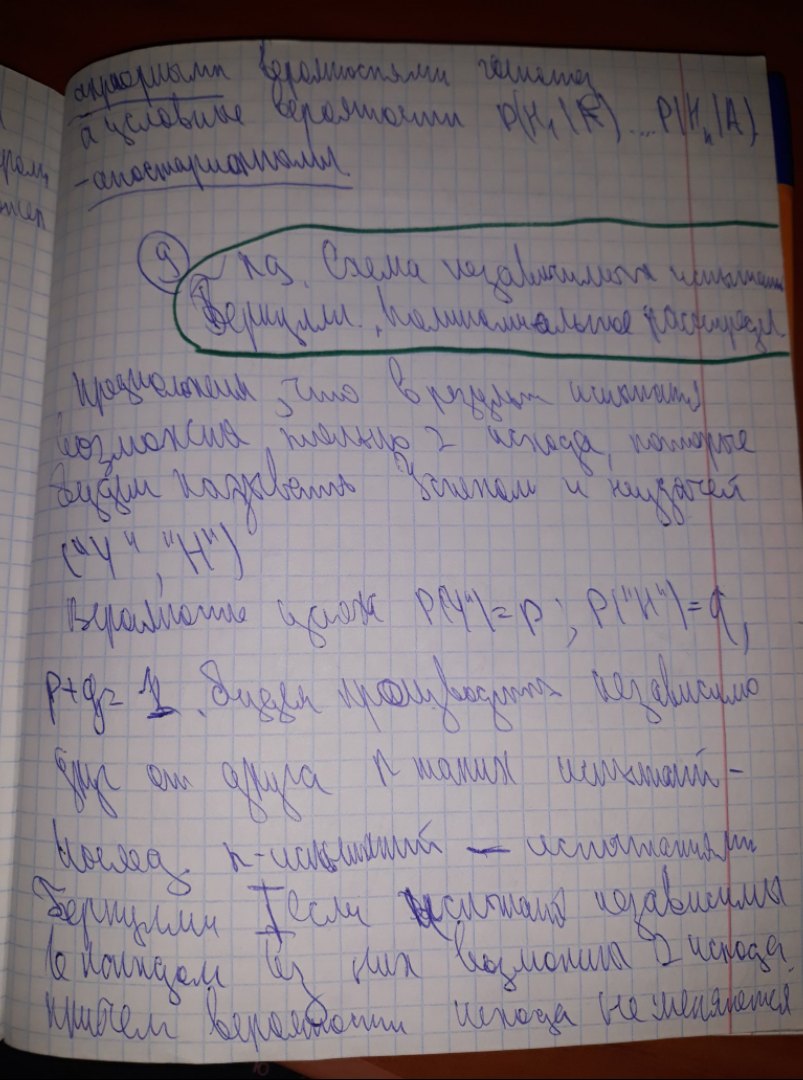 априорными вероятностями гипотез,
а условные вероятности P(H₁|A) .... P(Hₙ|A)
- апостариорными.
9 §9. Схема независимых испытаний
Бернулли. Полиномиальное распредел.
Предположим, что в результ испытания
возможны только 2 исхода, которые
будем называть Успехом и неудачей
("У", "Н")
Вероятность P("У")=p; P("Н")=q,
p+q=1. Будем производить независимо
друг от друга n таких испытаний-
послед. n-испытаний — испытаниями
Бернулли если испытан независимы
в каждом из них возможны 2 исхода,
причем вероятности исхода не меняется